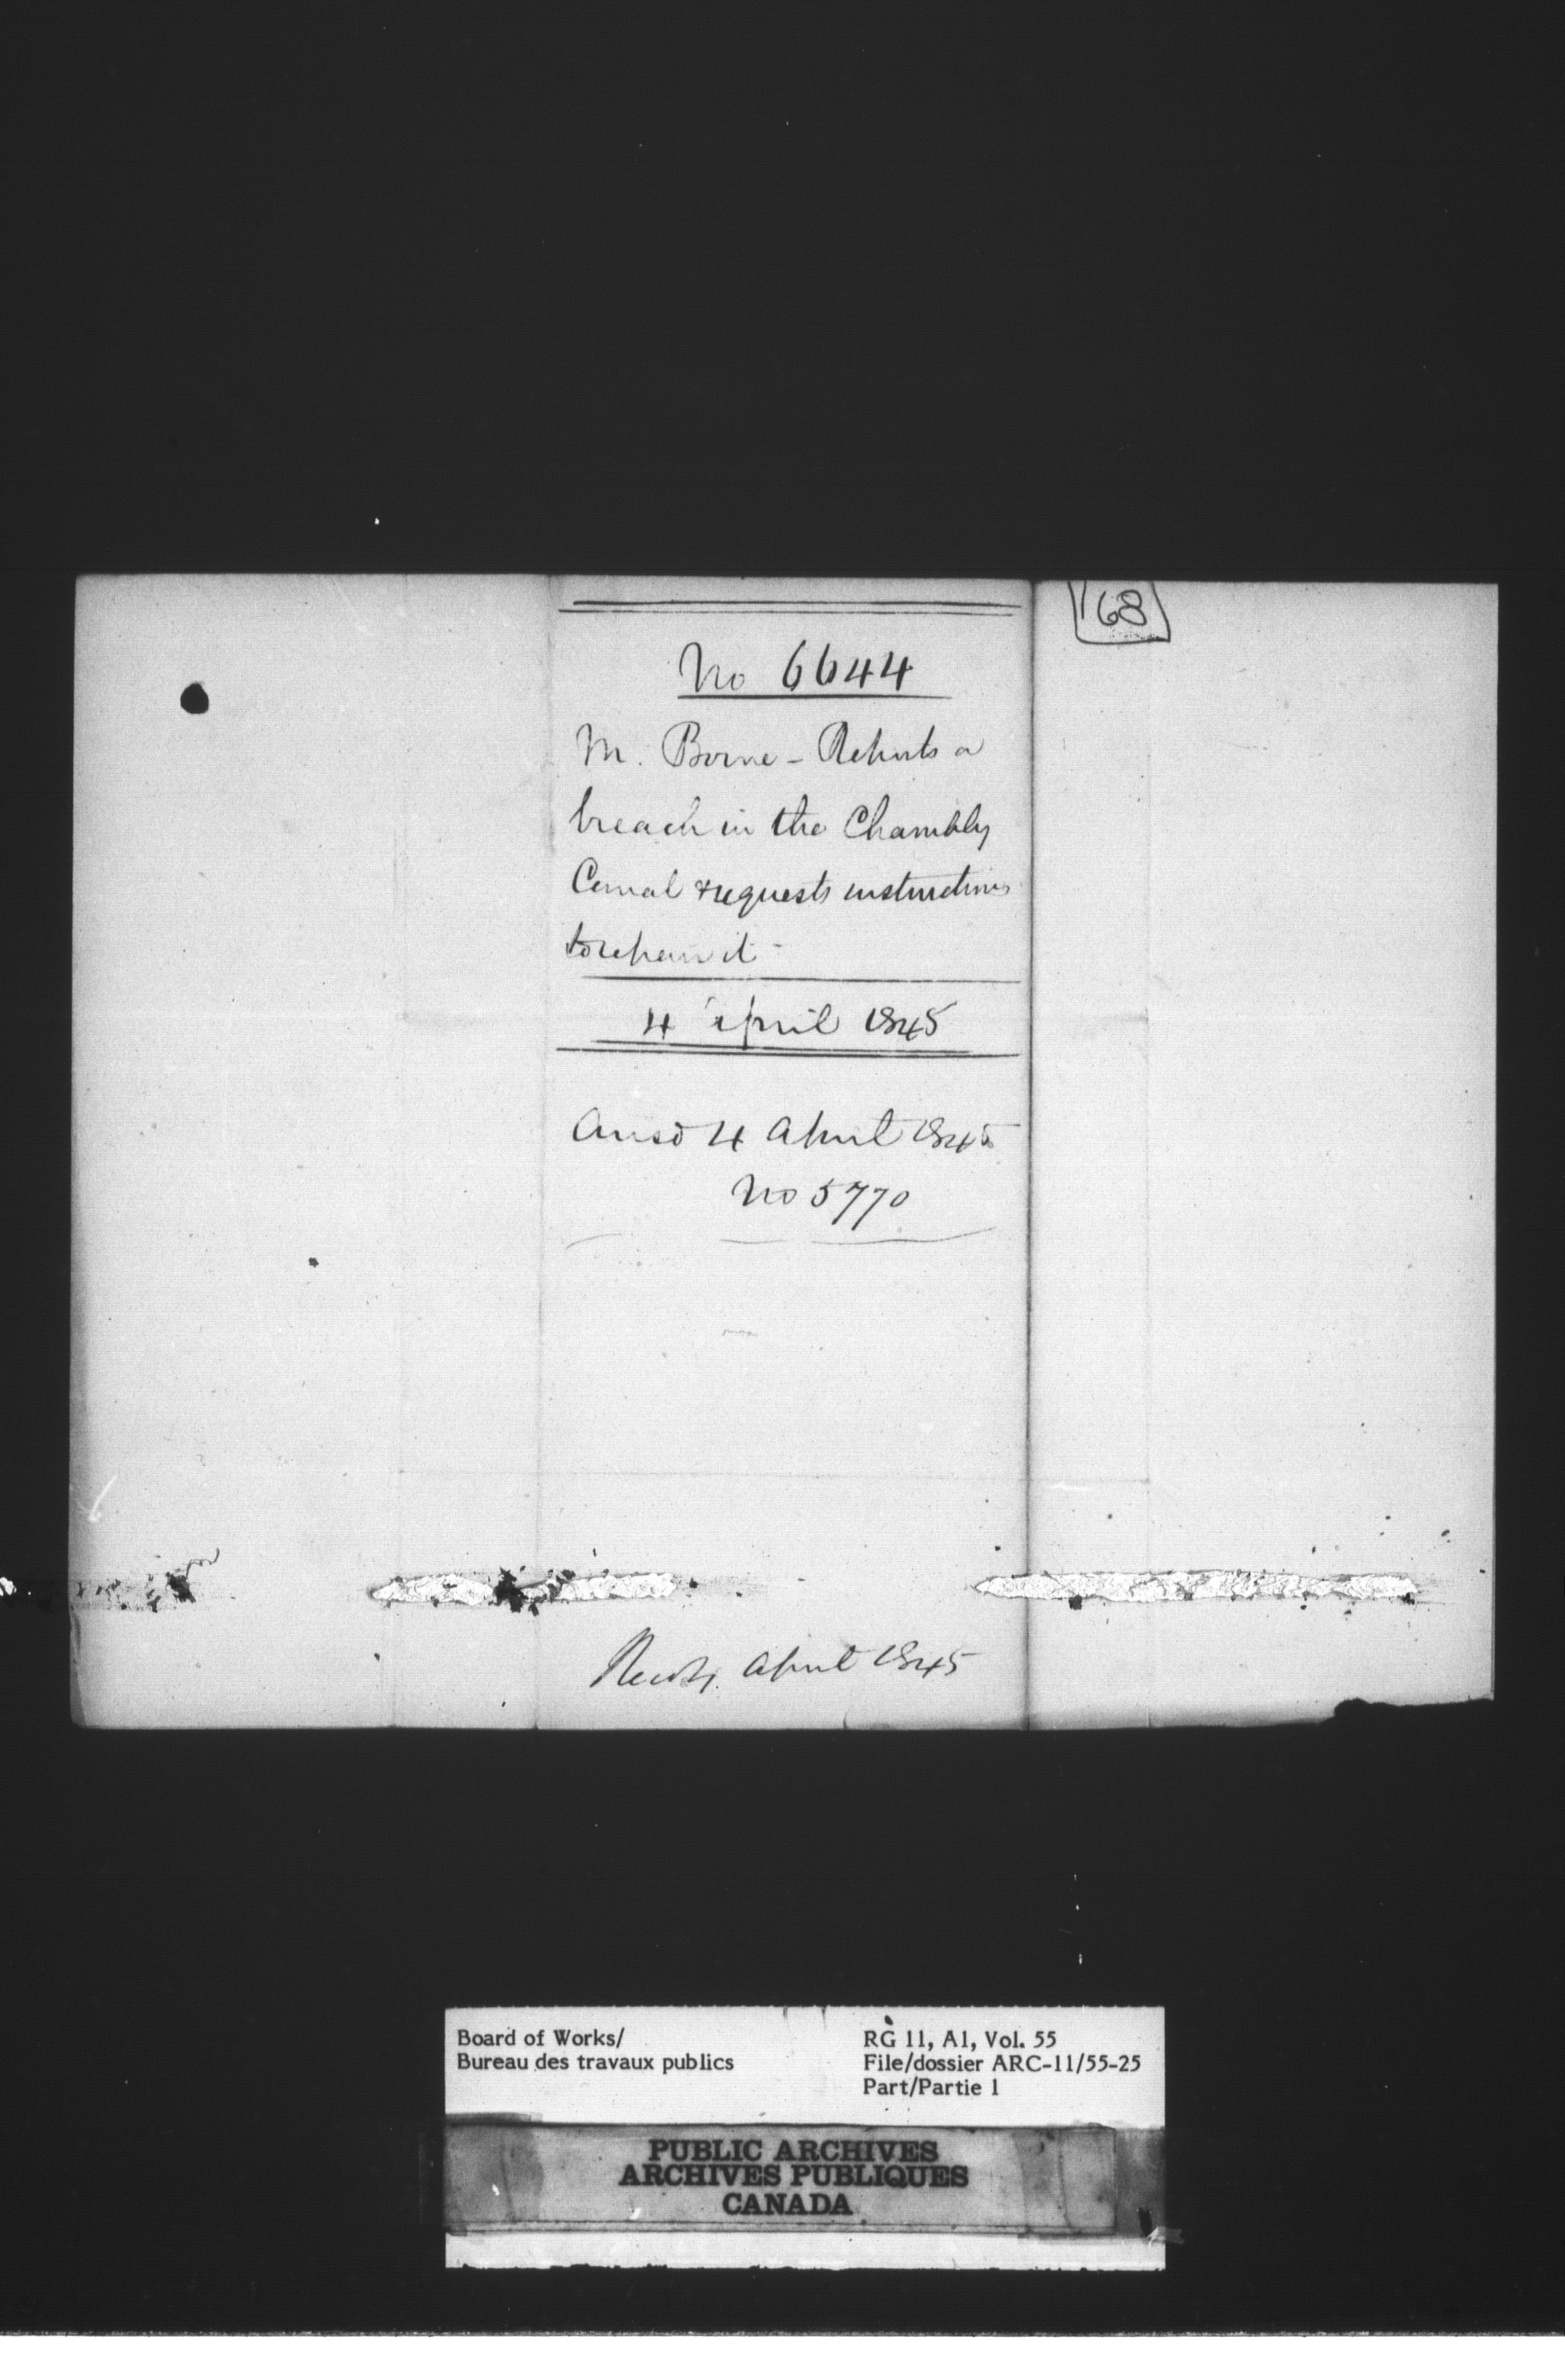 168
No 6644
M. Borne - Reports a
breach in the Chambly
Canal & requests instructions
to repair it -
4 April 1845
Ansd 4 April 1845
No 5770
Recd 4. April 1845
Board of Works/
Bureau des travaux publics
RG 11, A1, Vol. 55
File/dossier ARC-11/55-25
Part/Partie 1
PUBLIC ARCHIVES
ARCHIVES PUBLIQUES
CANADA